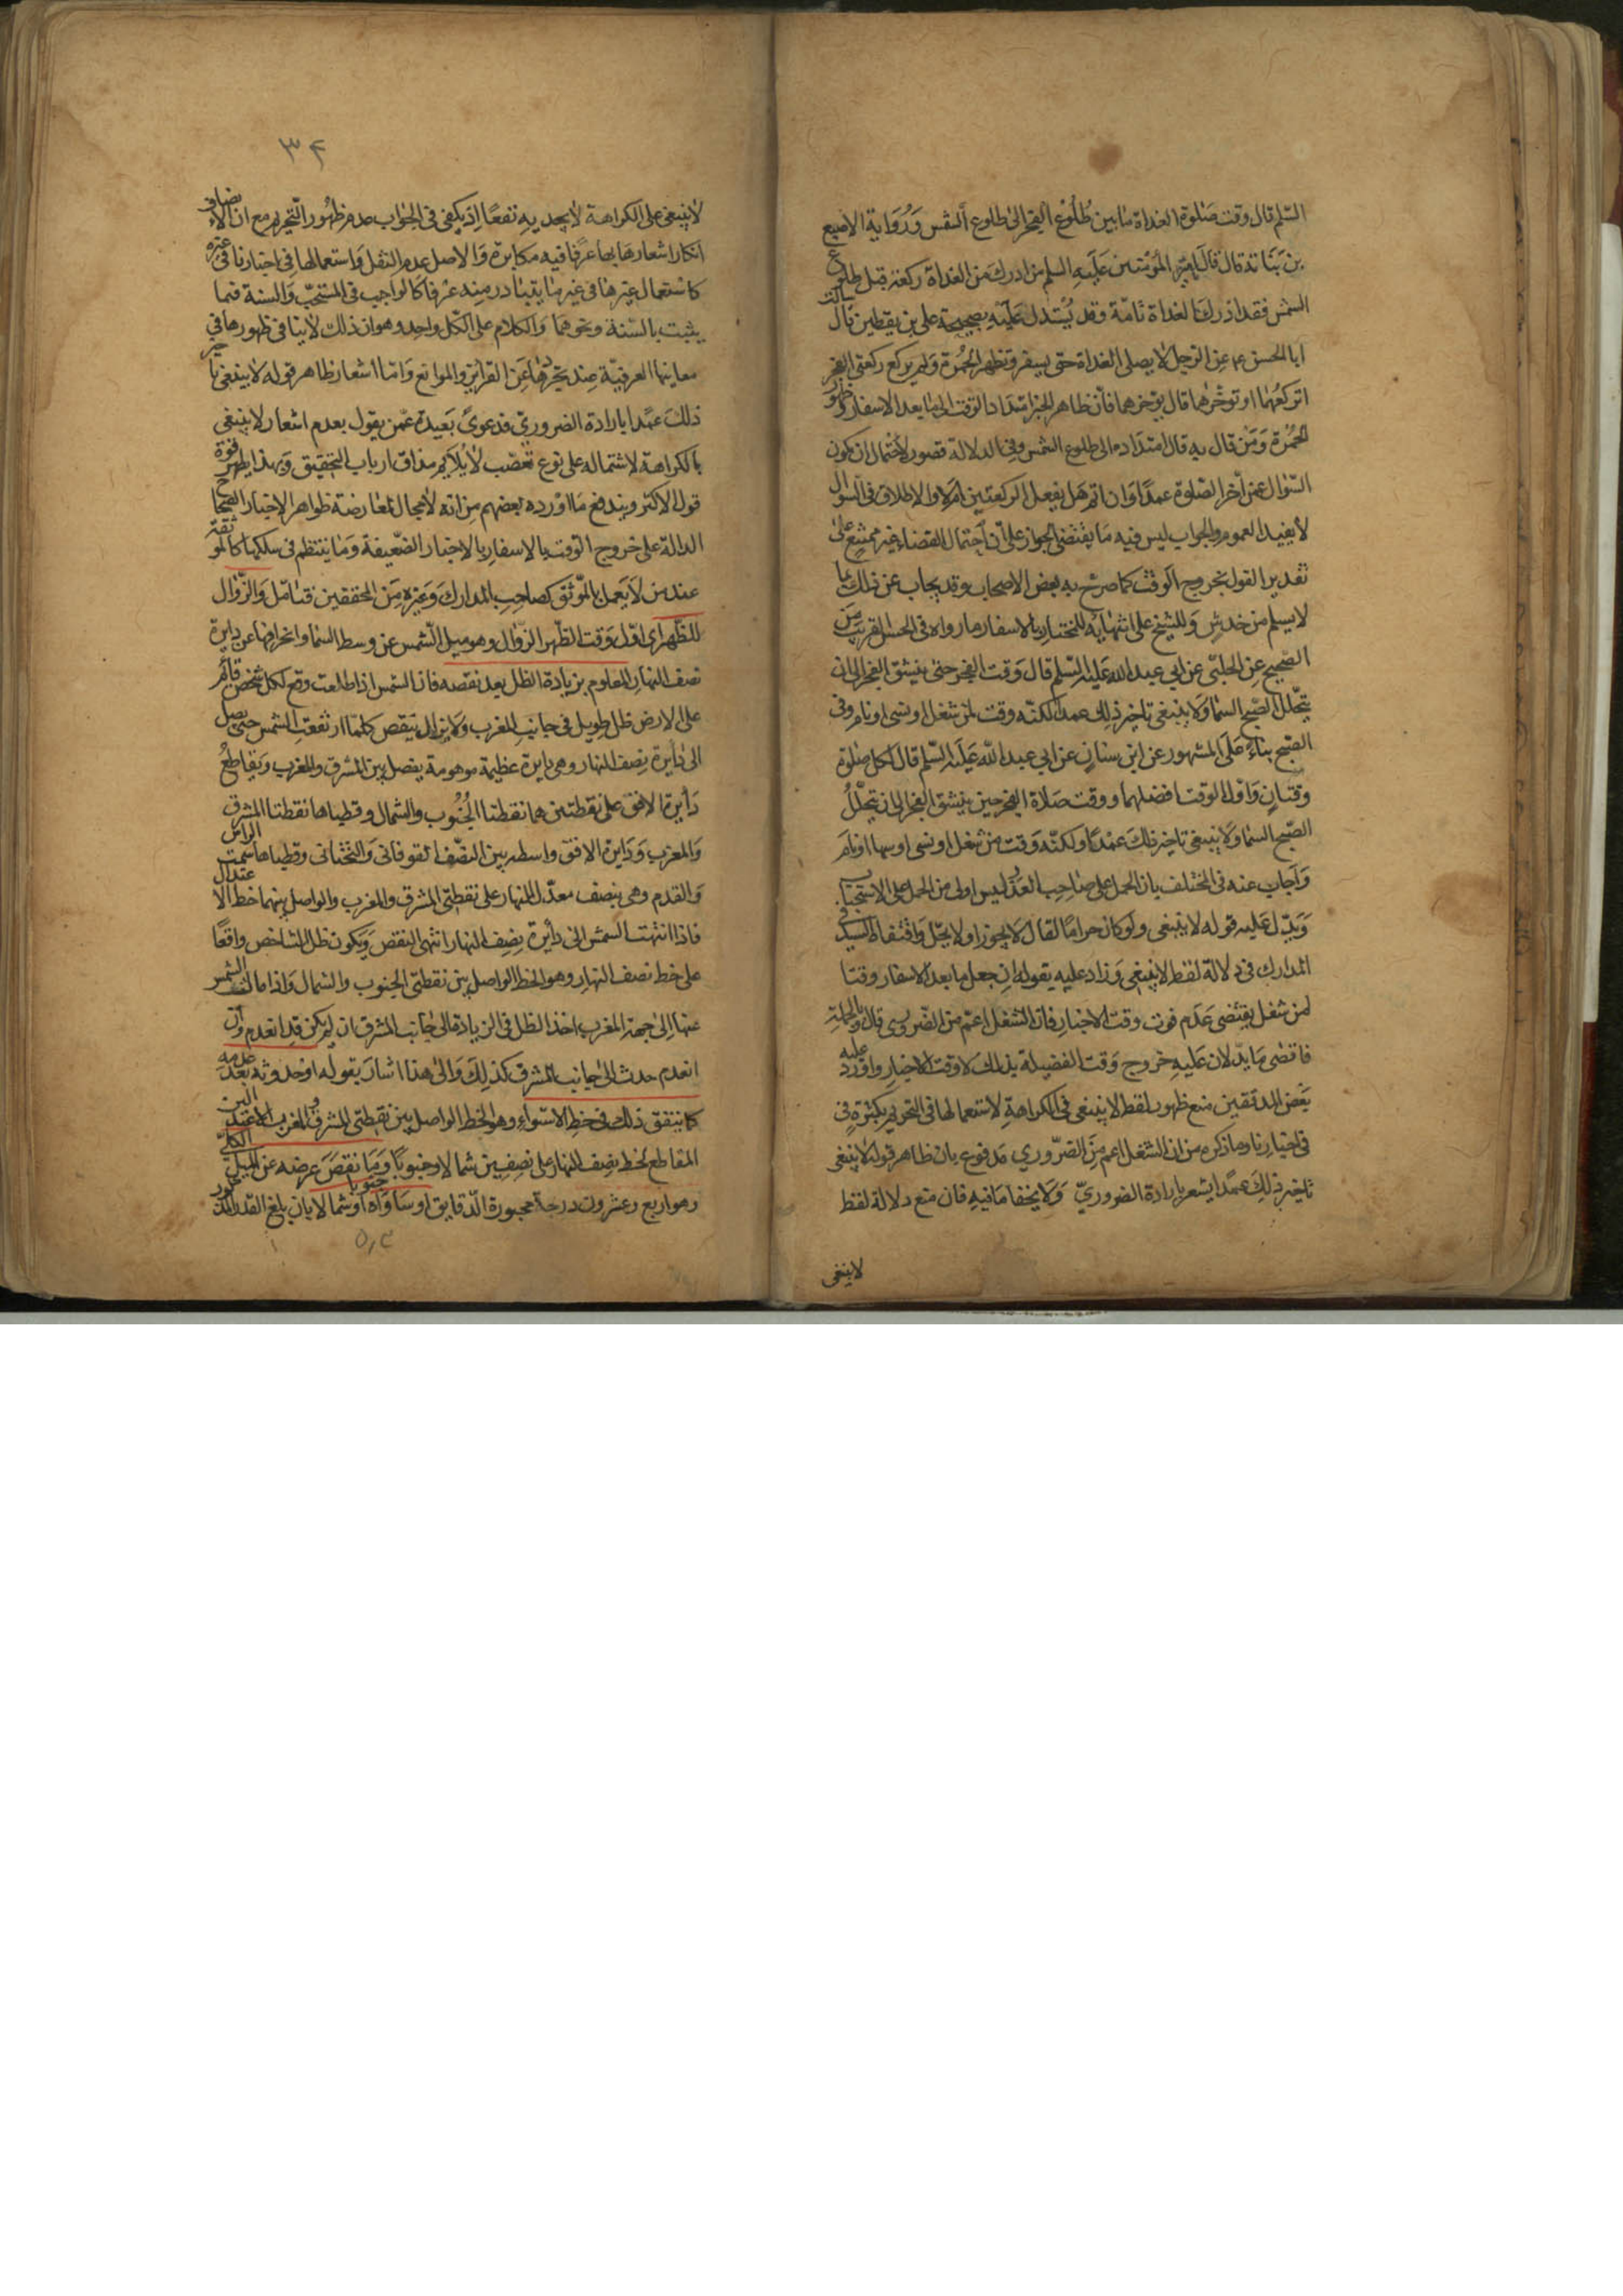 السّلم قال وقت صلوة الغداة ما بين طلوع الفجر الى طلوع الشمس ورواية الاصبع
بن نباتة قال قال امير المؤمنين عليه السلم من ادرك من الغداة ركعة قبل طلوع
الشمس فقد ادرك الغداة تامّة وقد يستدل عليه بصحيحة علي بن يقطين قال سالت
ابا الحسن عم عن الرجل لا يصلى الغداة حتى يسفر وتظهر الحمرة ولم يركع ركعتى الفجر
اتركعهما او توخرهما قال يوخرهما فان ظاهر الخبر امتداد الوقت الى ما بعد الاسفار وظهور
الحمرة ومن قال به قال امتداده الى طلوع الشمس وفى الدلالة قصور لاحتمال ان يكون
السّوال عمن أخر الصّلوة عمدًا وانه هل يفعل الركعتين ام لا والاطلاق فى السّوال
لا يفيد العموم والجواب ليس فيه ما يقتضى الجواز على أن احتمال القضاء غير ممتنع على
تقدير القول بخروج الوقت كما صرح به بعض الاصحاب وقد يجاب عن ذلك بما
لا يسلم من خدش وللشيخ على انتهائه للمختار بالاسفار ما رواه فى الحسن القريب من
الصّحيح عن الحلبى عن ابي عبد الله عليه السّلم قال وقت الفجر حتى ينشق الفجر الى ان
يتجلّل الصّبح السّما ولا ينبغى تاخير ذلك عمدا لكنّه وقت لمن شغل او نسى او نام وفى
الصّحيح بناءً على المشهور عن ابن سنان عن ابي عبد الله عليه السّلم قال لكل صلوة
وقتان واوّل الوقت افضلهما ووقت صلاة الفجر حين ينشق الفجر الى ان يتجلّلُ
الصّبح السّما ولا ينبغى تاخير ذلك عمدًا ولكنّه وقت من شغل او نسى او سها او نام
واجاب عنه فى المختلف بان الحمل على صاحب العذر ليس اولى من الحمل على الاستحباب
ويدل عليه قوله لا ينبغى ولو كان حرامًا لقال لا يجوز او لا يحل واقتفاه السيد فى
المدارك فى دلالة لفظ لا ينبغى وزاد عليه بقوله ان جعل ما بعد الاسفار وقتا
لمن شغل يقتضى عدم فوت وقت الاختيار فان الشغل اعم من الضّرورى قال وبالجملة
فاقصى ما يدّلان عليه خروج وقت الفضيلة بذلك لا وقت الاختيار واورد عليه
بعض المدققين منع ظهور لفظ لا ينبغى فى الكراهة لاستعمالها فى التحريم بكثرة فى
فى اخبارنا وما ذكره من ان الشغل اعم من الضّروري مدفوع بان ظاهر قوله لا ينبغى
تاخير ذلك عمدًا يشعر بارادة الضروريّ ولا يخفا ما فيه فان منع دلالة لفظ
لا ينبغى
٣٤
لا ينبغى على الكراهة لا يجد يه نفعًا اذ يكفى فى الجواب عدم ظهور التّحريم مع ان الانصاف
انكار اشعارها بها عرفا فيه مكابرة والاصل عدم النقل واستعمالها فى اخبارنا فى غيره
كاستعمال غيرها فى غير ما يتبادر منه عرفا كالواجب فى المستحبّ والسنة فيما
يثبت بالسّنة ونحوهما والكلام على الكّل واحد وهو ان ذلك لا ينافى ظهورها فى
معاينها العرفيّة عند تجردها عن القراين والموانع وامّا اشعار ظاهر قوله لا ينبغى تاخير
ذلك عمدا بارادة الضروريّ فدعوىً بعيدة عمن يقول بعدم اشعار لا ينبغى
بالكراهة لاشتماله على نوع تعصّب لا يلايم مذاق ارباب التحقيق وبهذا يظهر قوة
قول الاكثر ويندفع ما اورده بعضهم من انه لا مجال لمعارضة ظواهر الاخبار الصحاح
الدالة على خروج الوقت بالاسفار بالاخبار الضّعيفة وما ينتظم فى سلكها كالموثقة
عند من لا يعمل بالموثق كصاحب المدارك وغيره من المحققين فتامّل والزّوال
للظهر اى اوّل وقت الظّهر الزّوال وهو ميل الشّمس عن وسط السّما وانحرافها عن دايرة
نصف النهار المعلوم بزيادة الظل بعد نقصه فان الشمس اذا طلعت وقع لكل شخص قائم
على الارض ظل طويل فى جانب المغرب ولا يزال ينقص كلما ارتفعت الشمس حتى يصل
الى دايرة نصف النهار وهى دايرة عظيمة موهومة يفصل بين المشرق والمغرب وتقاطع
دايرة الافق على نقطتين هما نقطتا الجُنُوب والشمال وقطباها نقطتا المشرق
والمغرب ودايرة الافق واسطه بين النصّف الفوقانى والتحتانى وقطباها سمت الراس
والقدم وهى ينصف معدّل النهار على نقطتى المشرق والمغرب والواصل بينهما خط الاعتدال
فاذا انتهت الشمس الى دأيرة نصف النهار انتهى النقص ويكون ظل الشاخص واقعًا
على خط نصف النهار وهو الخط الواصل بين نقطتى الجنوب والشمال واذا مالت الشمس
عنها الى جهة المغرب اخذ الظل فى الزيادة الى جانب المشرق ان لم يكن قد انعدم وان
انعدم حدث الى جانب المشرق كذلك والى هذا اشار بقوله او حدوثه بعد عدمه
كما يتفق ذلك فى خط الاستواء وهو الخط الواصل بين نقطتى المشرق والمغرب
المقاطع لخط نصف النهار على نصفين شمالا وجنوبًا وما نقص عرضه عن الميل الكلّى
وهو اربع وعشرون درجة مجبورة الدّقايق او ساواه جنوبا او شمالا بان بلغ القدر